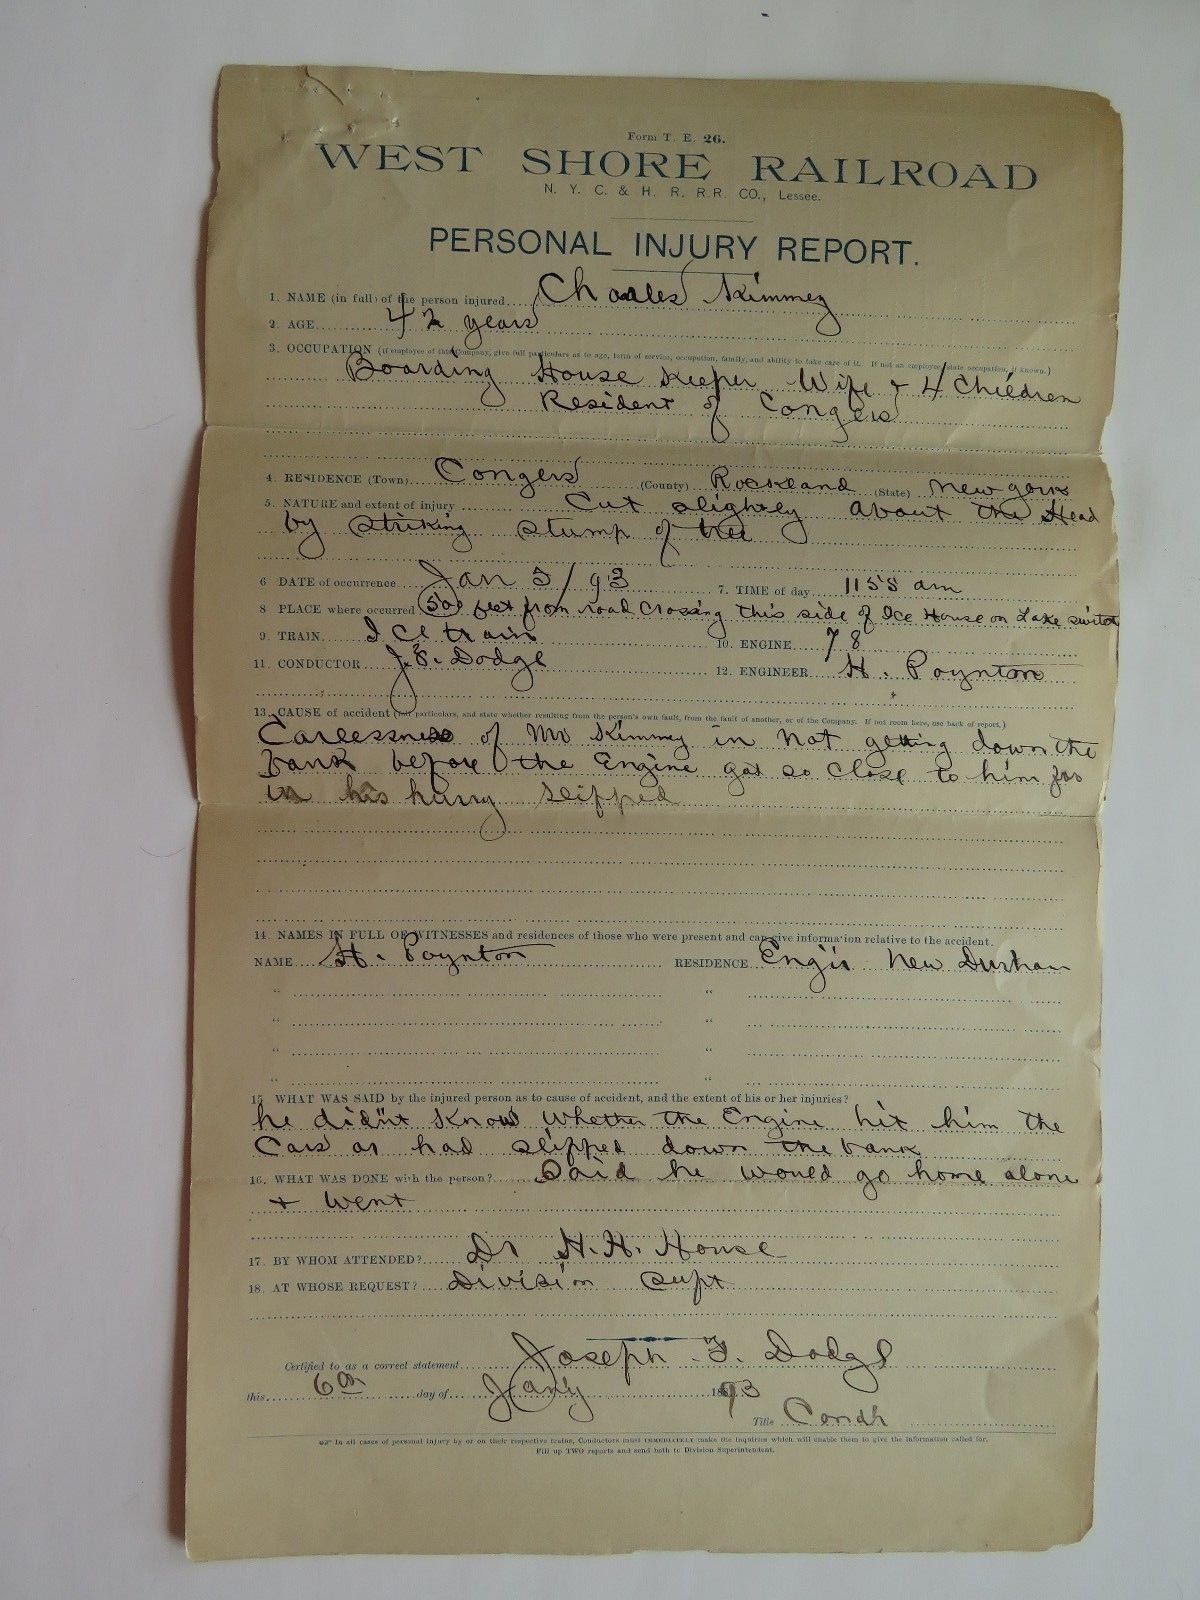 Form T. E. 26.
WEST SHORE RAILROAD
N. Y. C. & H. R. R.R. CO., Lessee.
PERSONAL INJURY REPORT.
1. NAME (in full) of the person injured Charles Kimmey
2. AGE 42 years
3. OCCUPATION (If employee of this Company, give full particulars as to age, term of service, occupation, family, and ability to take care of it. If not an employee, state occupation, if known.)
Boarding House Keeper Wife + 4 Children
Resident of Congers
4. RESIDENCE (Town) Congers (County) Rockland (State) New York
5. NATURE and extent of injury Cut slightly about the Head
by striking stump of tree
6 DATE of occurrence Jan 5/93 7. TIME of day 1155 am
8 PLACE where occurred 500 feet from road crossing this side of Ice House on Lake switch
9. TRAIN Ice train 10. ENGINE 78
11. CONDUCTOR J. F. Dodge 12. ENGINEER H. Poynton
13. CAUSE of accident (full particulars, and state whether resulting from the person's own fault, from the fault of another, or of the Company. If not room here, use back of report.)
Carlessness of Mr Kimmey in not getting down the
bank before the Engine got so close to him
in his hurry slipped
14. NAMES IN FULL OF WITNESSES and residences of those who were present and can give information relative to the accident.
NAME H. Poynton RESIDENCE Eng'r New Durham
" "
" "
" "
" "
15 WHAT WAS SAID by the injured person as to cause of accident, and the extent of his or her injuries?
he didn't Know Whether the Engine hit him the
Cars or had slipped down the bank
16. WHAT WAS DONE with the person? Said he would go home alone
+ Went
17. BY WHOM ATTENDED? Dr H. H. House
18. AT WHOSE REQUEST? Division Supt
Certified to as a correct statement Joseph F. Dodge
this 6th day of Jany 1893
Title Condr
☞ In all cases of personal injury by or on their respective trains, Conductors must IMMEDIATELY make the inquiries which will enable them to give the information called for.
Fill up TWO reports and send both to Division Superintendent.